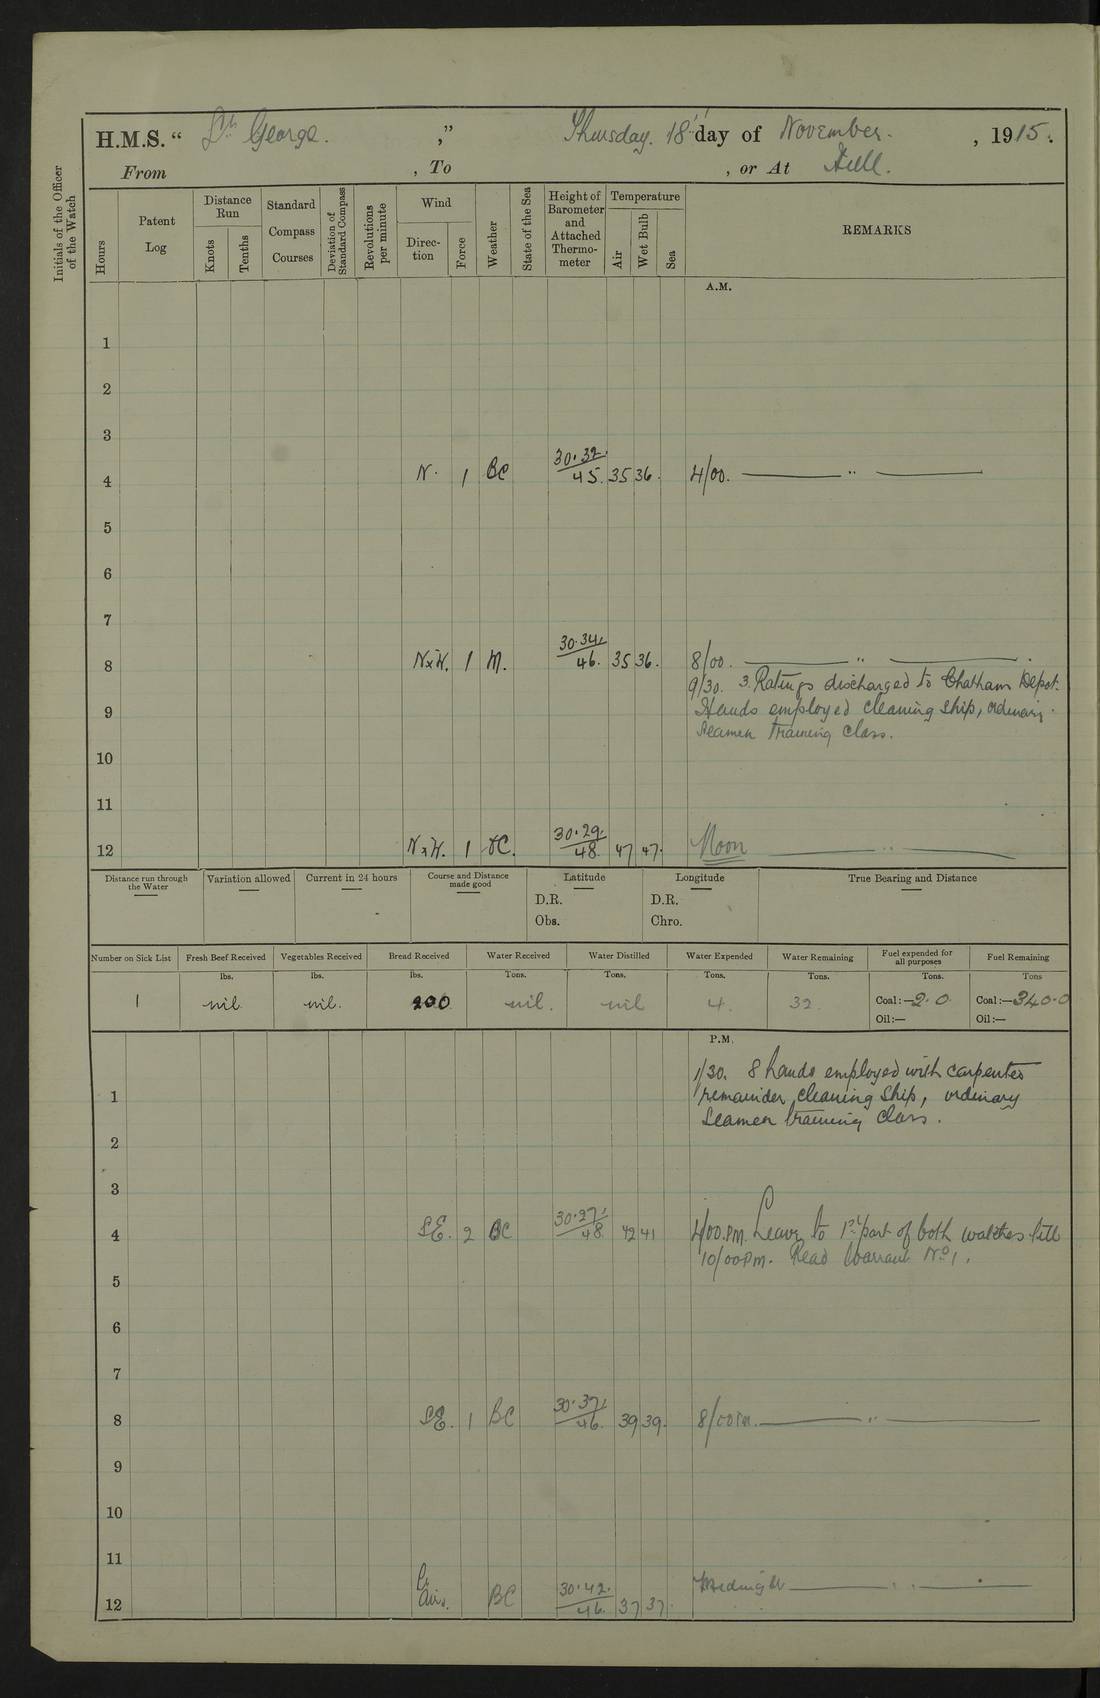 H.M.S. “ St. George. ” Thursday. 18th day of November. , 1915.
From , To , or At Hull.
Initials of the Officer of the Watch
Hours
Patent Log
Distance Run
Knots
Tenths
Standard Compass Courses
Deviation of Standard Compass
Revolutions per minute
Wind
Direction
Force
Weather
State of the Sea
Height of Barometer and Attached Thermometer
Temperature
Air
Wet Bulb
Sea
REMARKS
A.M.
1
2
3
4 N. 1 BC 30.32. 45. 35 36. 4/00. ——— " ———
5
6
7
8 NxW. 1 M. 30.34. 46. 35 36. 8/00. ——— " ———.
9/30. 3. Ratings discharged to Chatham Depot.
9 Hands employed cleaning ship, ordinary
seamen training class.
10
11
12 NxW. 1 C. 30.29. 48. 47 47. Noon ——— " ———
Distance run through the Water
Variation allowed
Current in 24 hours
Course and Distance made good
Latitude
D.R.
Obs.
Longitude
D.R.
Chro.
True Bearing and Distance
Number on Sick List
Fresh Beef Received
Vegetables Received
Bread Received
Water Received
Water Distilled
Water Expended
Water Remaining
Fuel expended for all purposes
Fuel Remaining
lbs. lbs. lbs. Tons. Tons. Tons. Tons. Tons. Tons
1 nil nil. 200 nil. nil 4. 32. Coal:—2.0 Coal:—340.0
Oil:— Oil:—
P.M.
1/30. 8 hands employed with carpenter
1 remainder cleaning ship, ordinary
Seamen training class.
2
3
4 SE. 2 BC 30.27. 48. 42 41 4/00.P.M. Leave to 1st part of both watches till
10/00PM. Read Warrant No 1.
5
6
7
8 SE. 1 BC 30.37. 46. 39 39. 8/00PM. ——— " ———
9
10
11
12 Lt Airs. BC 30.42. 46. 37 37. Midnight ——— " ———